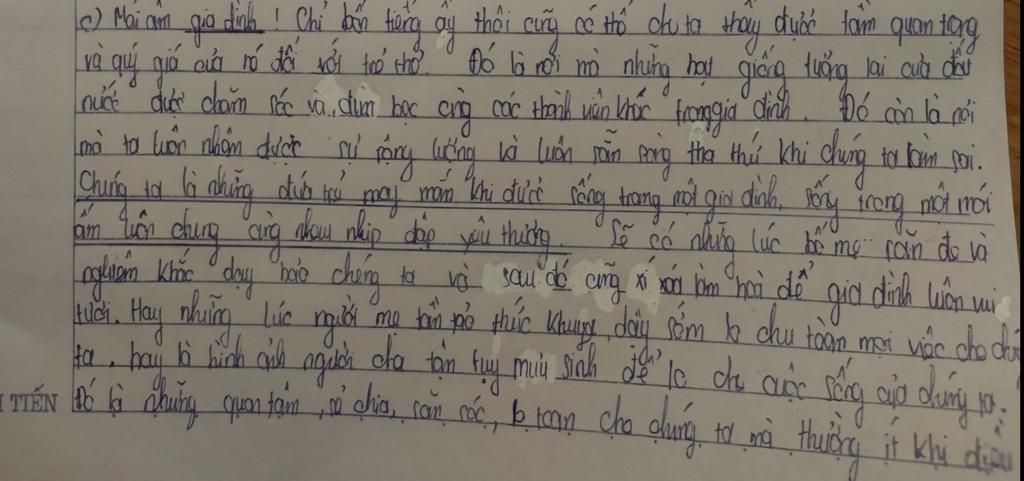 c) Mái ấm gia đình ! Chỉ bốn tiếng ấy thôi cũng có thể cho ta thấy được tầm quan trọng
và quý giá của nó đối với trẻ thơ. Đó là nơi mà những hạt giống tương lai của đất
nước được chăm sóc và đùm bọc cùng các thành viên khác trong gia đình. Đó còn là nơi
mà ta luôn nhận được sự rộng lượng và luôn sẵn sàng tha thứ khi chúng ta làm sai.
Chúng ta là những đứa trẻ may mắn khi được sống trong một gia đình, sống trong một mái
ấm luôn chung cùng nhau nhịp đập yêu thương. Sẽ có những lúc bố mẹ răn đe và
nghiêm khắc dạy bảo chúng ta và sau đó cũng xí xóa làm hoà để gia đình luôn vui
tươi. Hay những lúc người mẹ tần tảo thức khuya, dậy sớm lo chu toàn mọi việc cho
ta, hay là hình ảnh người cha tận tụy mưu sinh để lo cho cuộc sống của chúng ta.
TIẾN Đó là những quan tâm, sẻ chia, săn sóc, lo toan cho chúng ta mà thường ít khi